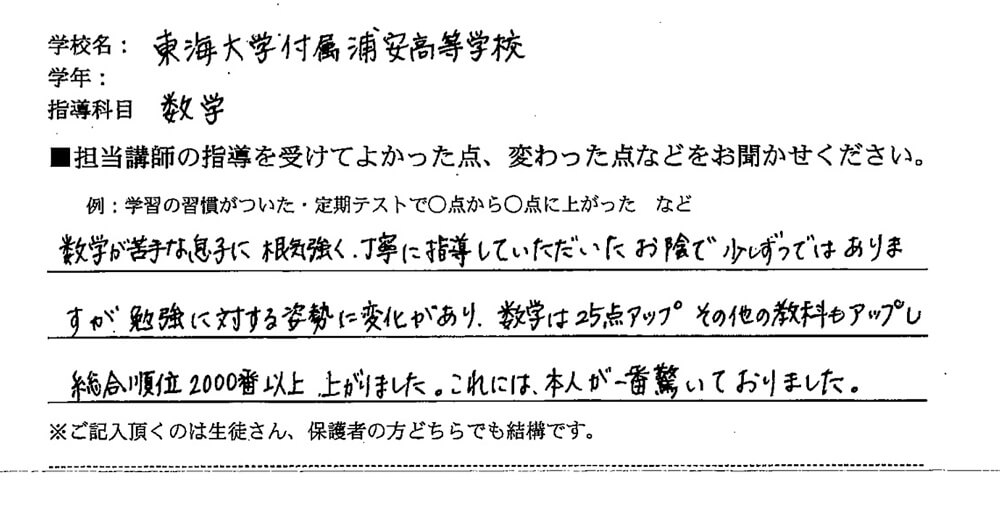 学校名： 東海大学付属浦安高等学校
学年：
指導科目 数学
■担当講師の指導を受けてよかった点、変わった点などをお聞かせください。
例：学習の習慣がついた・定期テストで〇点から〇点に上がった　など
数学が苦手な息子に 根気強く、丁寧に指導していただいた お陰で 少しずつではありま
すが 勉強に対する姿勢に変化があり、数学は25点アップ その他の教科もアップし
総合順位2000番以上 上がりました。これには、本人が一番驚いておりました。
※ご記入頂くのは生徒さん、保護者の方どちらでも結構です。